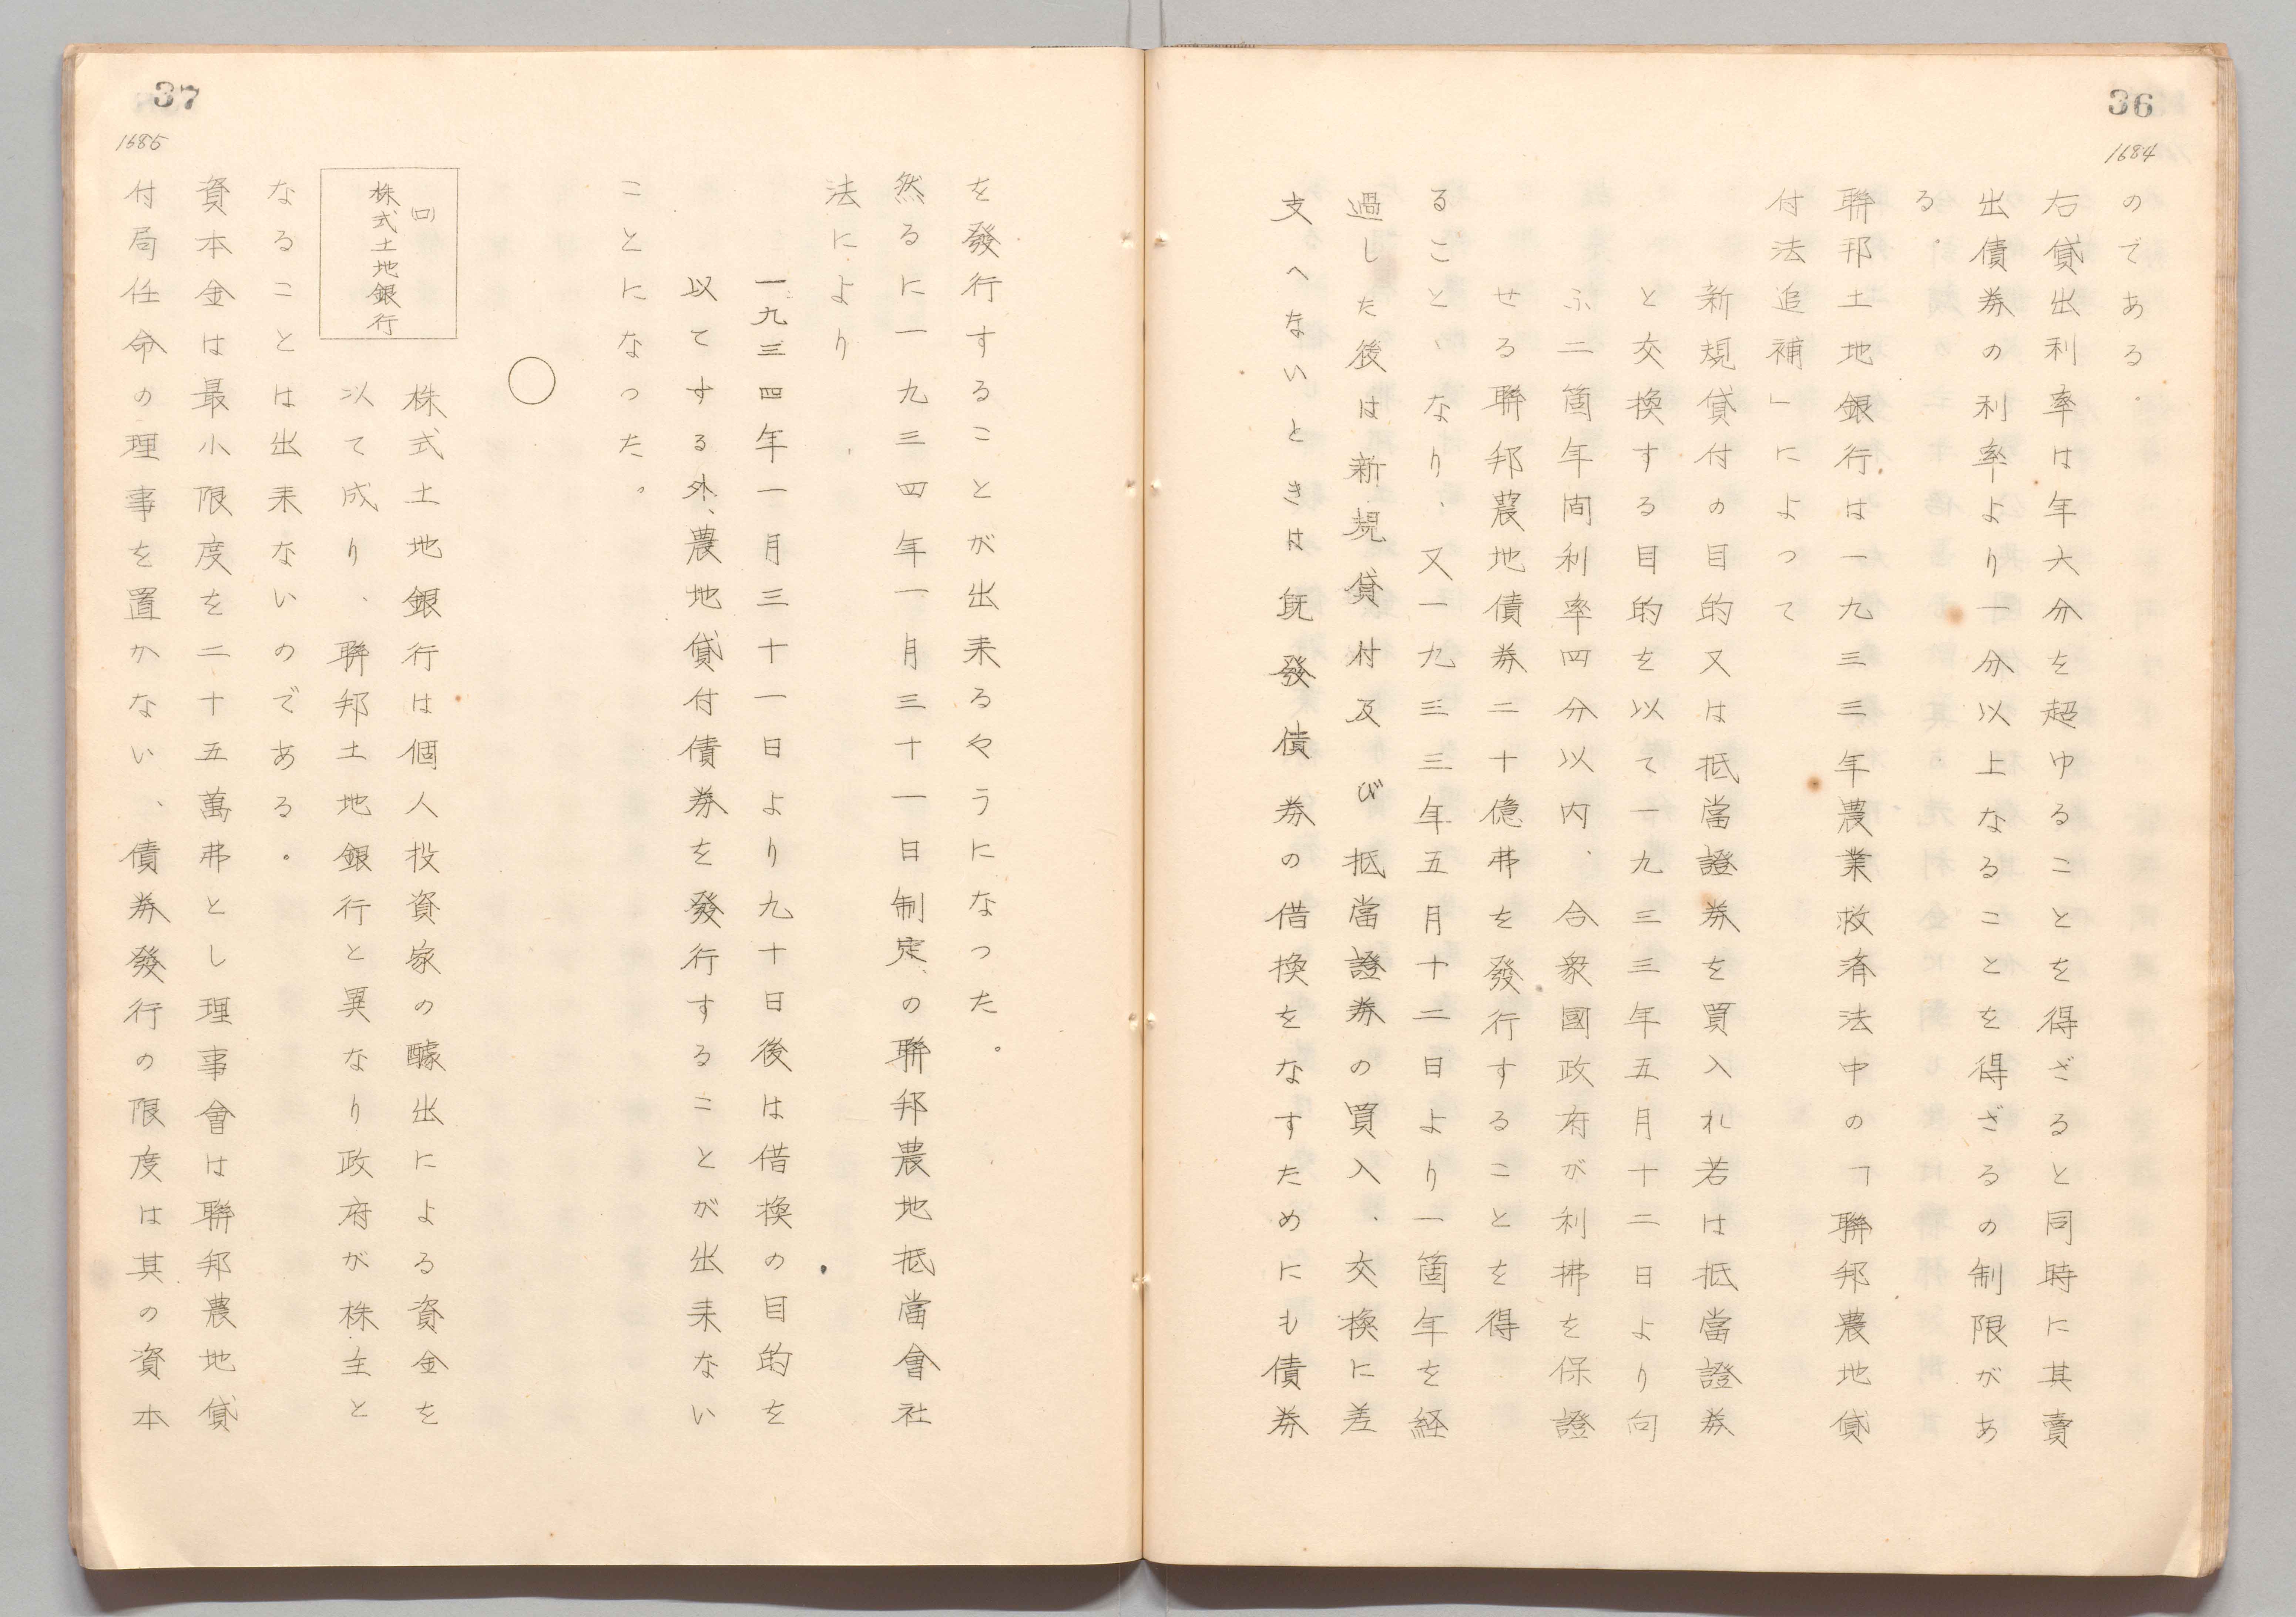 36
1684
のである。
右貸出利率は年六分を超ゆることを得ざると同時に其賣
出債券の利率より一分以上なることを得ざるの制限があ
る。
聯邦土地銀行は一九三三年農業救済法中の「聯邦農地貸
付法追補」によつて
新規貸付の目的又は抵當證券を買入れ若は抵當證券
と交換する目的を以て一九三三年五月十二日より向
ふ二箇年間利率四分以内、合衆國政府が利拂を保證
せる聯邦農地債券二十億弗を發行することを得
ることゝなり、又一九三三年五月十二日より一箇年を経
過した後は新規貸付及び抵當證券の買入、交換に差
支へないときは既發債券の借換をなすためにも債券
37
1685
を發行することが出来るやうになつた。
然るに一九三四年一月三十一日制定の聯邦農地抵當會社
法により
一九三四年一月三十一日より九十日後は借換の目的を
以てする外、農地貸付債券を發行することが出来ない
ことになつた。
○
(ロ)
株式土地銀行
株式土地銀行は個人投資家の醵出による資金を
以て成り、聯邦土地銀行と異なり政府が株主と
なることは出来ないのである。
資本金は最小限度を二十五萬弗とし理事會は聯邦農地貸
付局任命の理事を置かない、債券發行の限度は其の資本